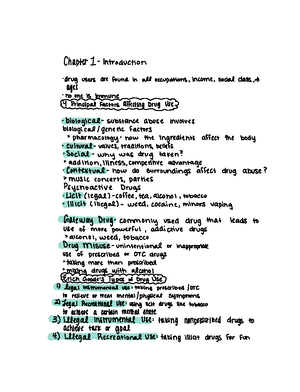 Chapter 1 - Introduction
· drug users are found in all occupations, income, social class, +
ages
· no one is immune
4 Principal Factors Affecting Drug Use
· biological - substance abuse involves
biological/genetic factors
> pharmacology - how the ingredients affect the body
· cultural - values, traditions, beliefs
· Social - why was drug taken?
> addition, illness, competitive advantage
· Contextual - how do surroundings affect drug abuse?
> music concerts, parties
Psychoactive Drugs
· Licit (legal) - coffee, tea, alcohol, tobacco
· Illicit (illegal) - weed, cocaine, minors vaping
Gateway Drug - commonly used drug that leads to
use of more powerful, addictive drugs
> alcohol, weed, tobacco
Drug Misuse - unintentional or inappropriate
use of prescribed or OTC drugs
· taking more than prescribed
· mixing drugs with alcohol
Erich Goode's Types of Drug Use
1) Legal Instrumental Use - taking prescribed/OTC
to relieve or treat mental/physical symptoms
2) Legal Recreational Use: using licit drugs like tobacco
to achieve a certain mental state
3) Illegal Instrumental Use: taking nonprescribed drugs to
achieve task or goal
4) Illegal Recreational Use: taking illicit drugs for fun